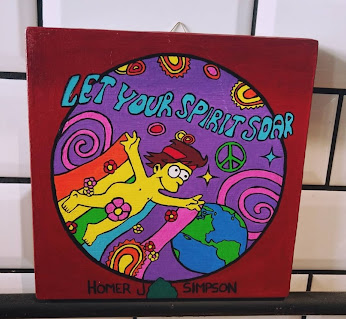 LET YOUR SPIRIT SOAR
HOMER J. SIMPSON